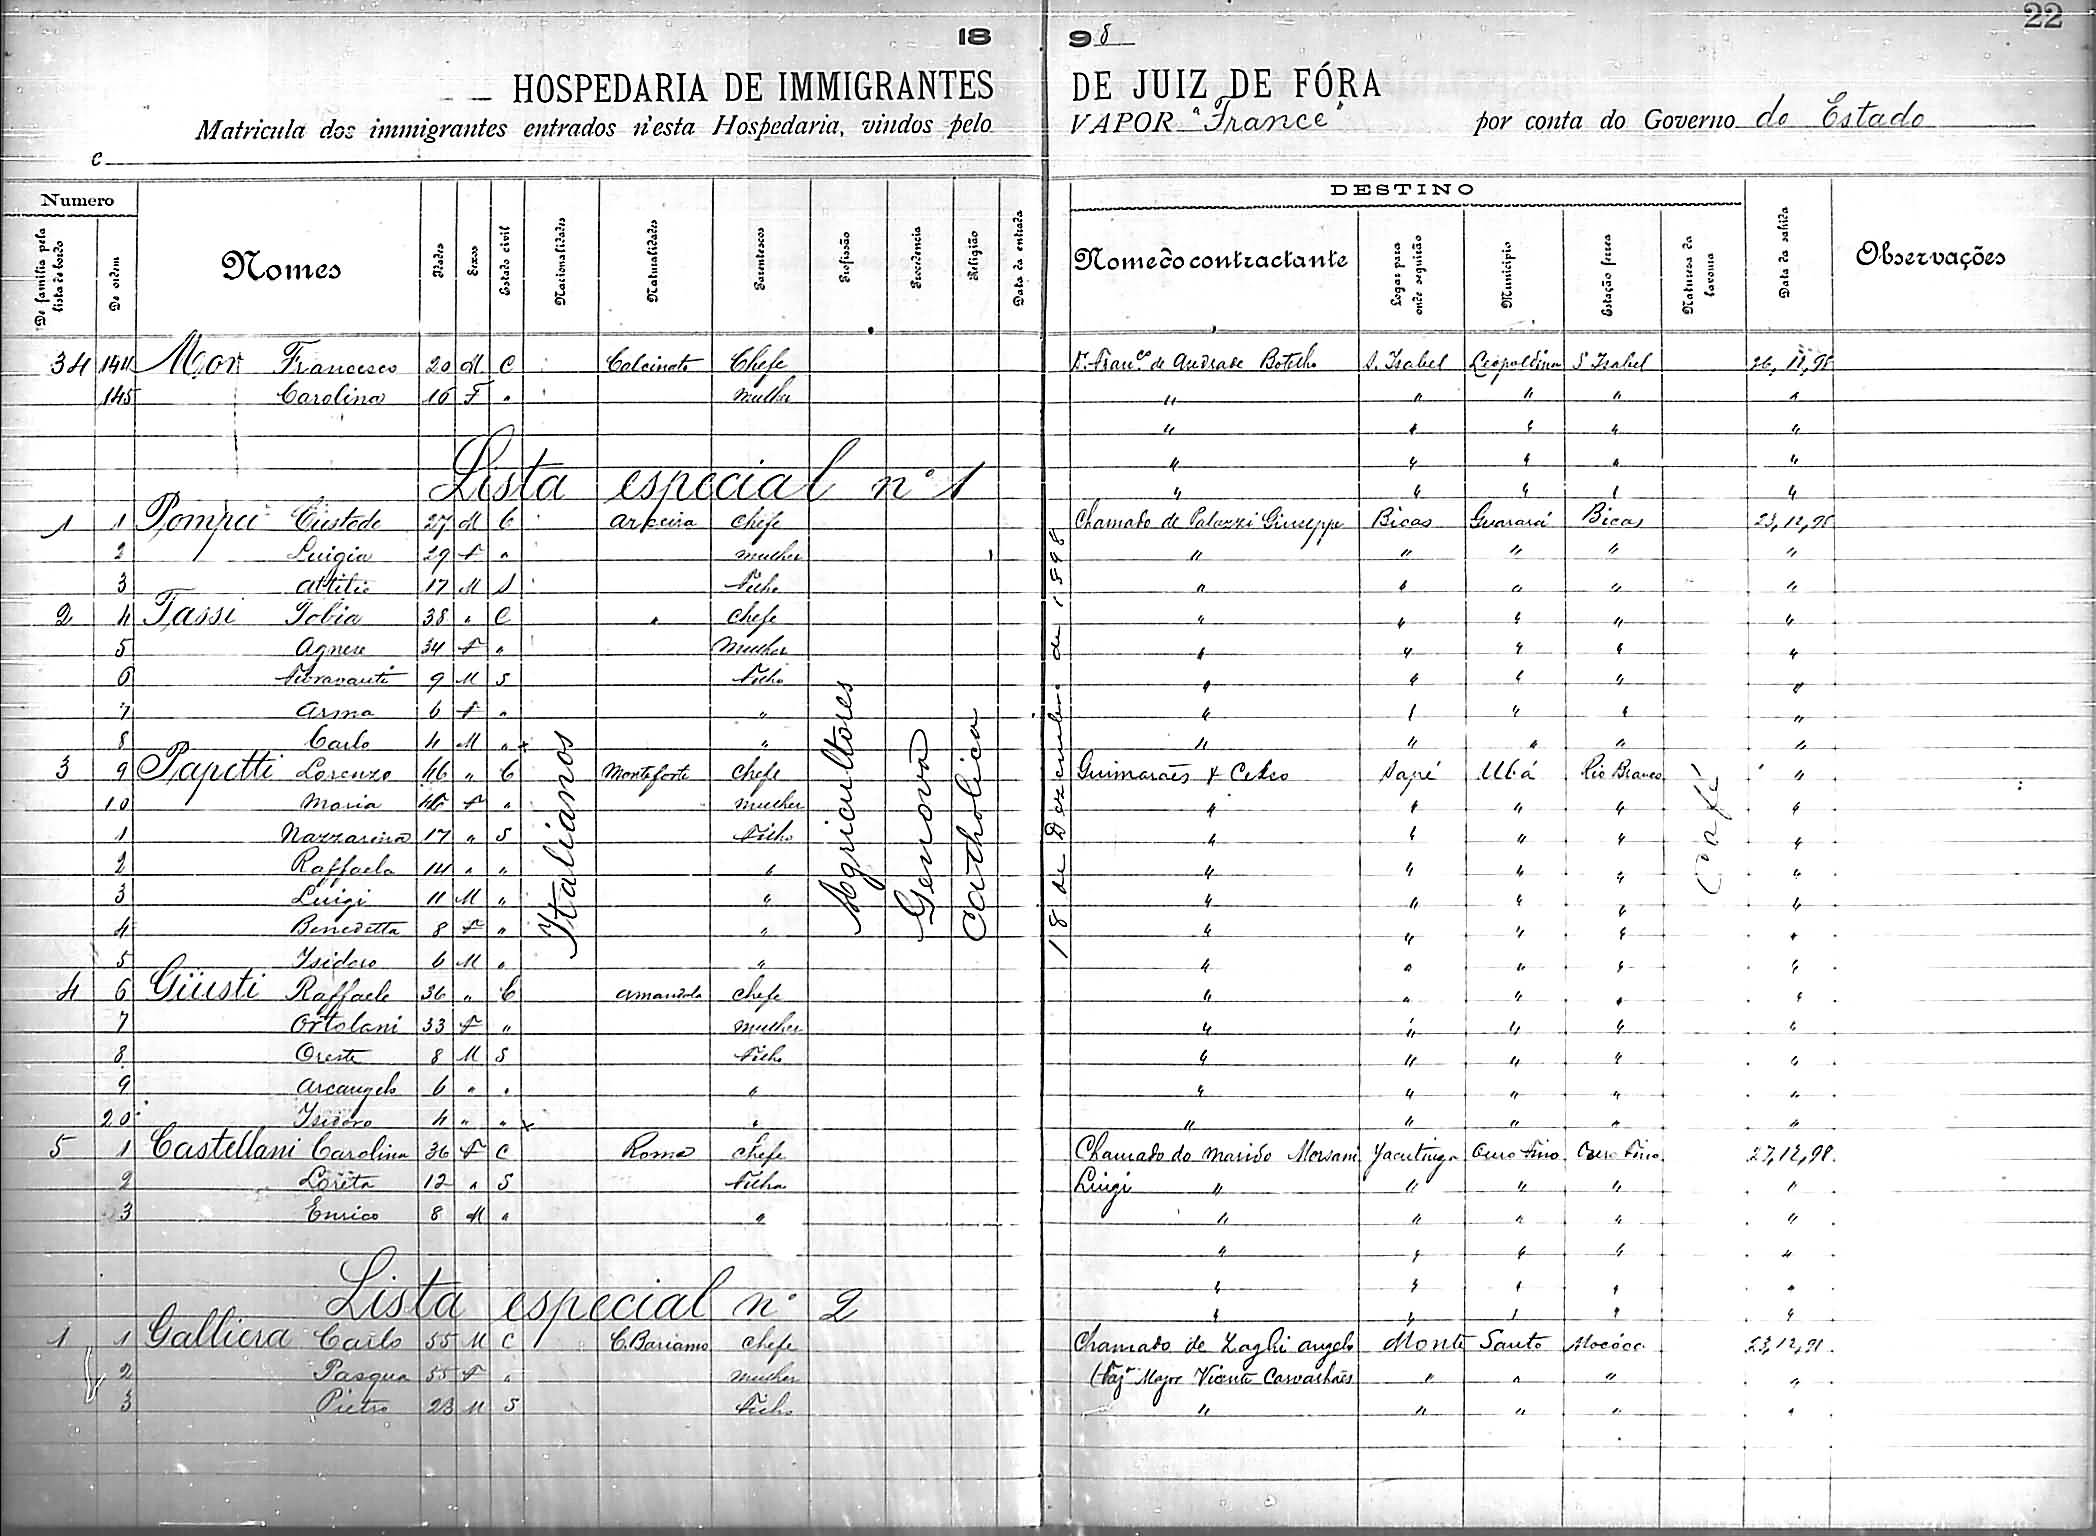 22
18 98
HOSPEDARIA DE IMMIGRANTES DE JUIZ DE FÓRA
Matricula dos immigrantes entrados n'esta Hospedaria, vindos pelo VAPOR "France" por conta do Governo do Estado
e
Numero
DESTINO
De familia pela lista de bordo
De ordem
Nomes
Idades
Sexos
Estado civil
Nacionalidades
Naturalidades
Parentescos
Profissão
Procedencia
Religião
Data da entrada
Nome do contractante
Logar para onde seguirão
Municipio
Estação ferrea
Natureza da lavoura
Data da sahida
Observações
34 144 Mor Francesco 20 M C Calcinato Chefe Dr. Franco de Andrade Botelho S. Izabel Leopoldina S Izabel
145 Carolina 16 F " Mulher " " " " "
" " " " "
" " " " "
Lista especial nº 1 " " " " "
1 1 Pompei Custode 27 M C Arceira Chefe Chamado de Palazzi Giuseppe Bicas Guarará Bicas 23,12,98
2 Luigia 29 F " mulher " " " " "
3 Attilio 17 M S Filho " " " " "
2 4 Tassi Tobia 38 " C " Chefe " " " " "
5 Agnese 34 F " Mulher " " " " "
6 Fioravanti 9 M S Filho " " " " "
7 Arma 6 F " " " " " " "
8 Carlo 4 M " x " " " " " "
3 9 Papetti Lorenzo 46 " C Monteforte Chefe Guimarães & Celso Sapé Ubá Rio Branco "
10 Maria 46 F " mulher " " " " "
1 Nazzarena 17 " S Filho " " " " "
2 Raffaela 14 " " " " " " " "
3 Luigi 11 M " " " " " " "
4 Benedetta 8 F " " " " " " "
5 Isidoro 6 M " " " " " " "
4 6 Giusti Raffaele 36 " C Amandola Chefe " " " " "
7 Ortolani 33 F " mulher " " " " "
8 Oreste 8 M S Filho " " " " "
9 Arcangelo 6 " " " " " " " "
20 Isidoro 4 " " x " " " " " "
5 1 Castellani Carolina 36 F C Roma Chefe Chamado do marido Morsani Jacutinga Ouro Fino Ouro Fino 27,12,98
2 Loreta 12 " S Filha Luigi " " " " "
3 Enrico 8 M " " " " " " "
" " " " "
" " " " "
Lista especial nº 2 " " " " "
1 1 Galliera Carlo 55 M C C. Bariano Chefe Chamado de Zaghi Angelo Monte Santo Mocóca
2 Pasqua 55 F " mulher (Faz. Major Vicente Carvalhães " " " "
3 Pietro 23 M S Filho " " " " "
Italianos
Agricultores
Genova
Catholica
18 de Dezembro de 1898
Café